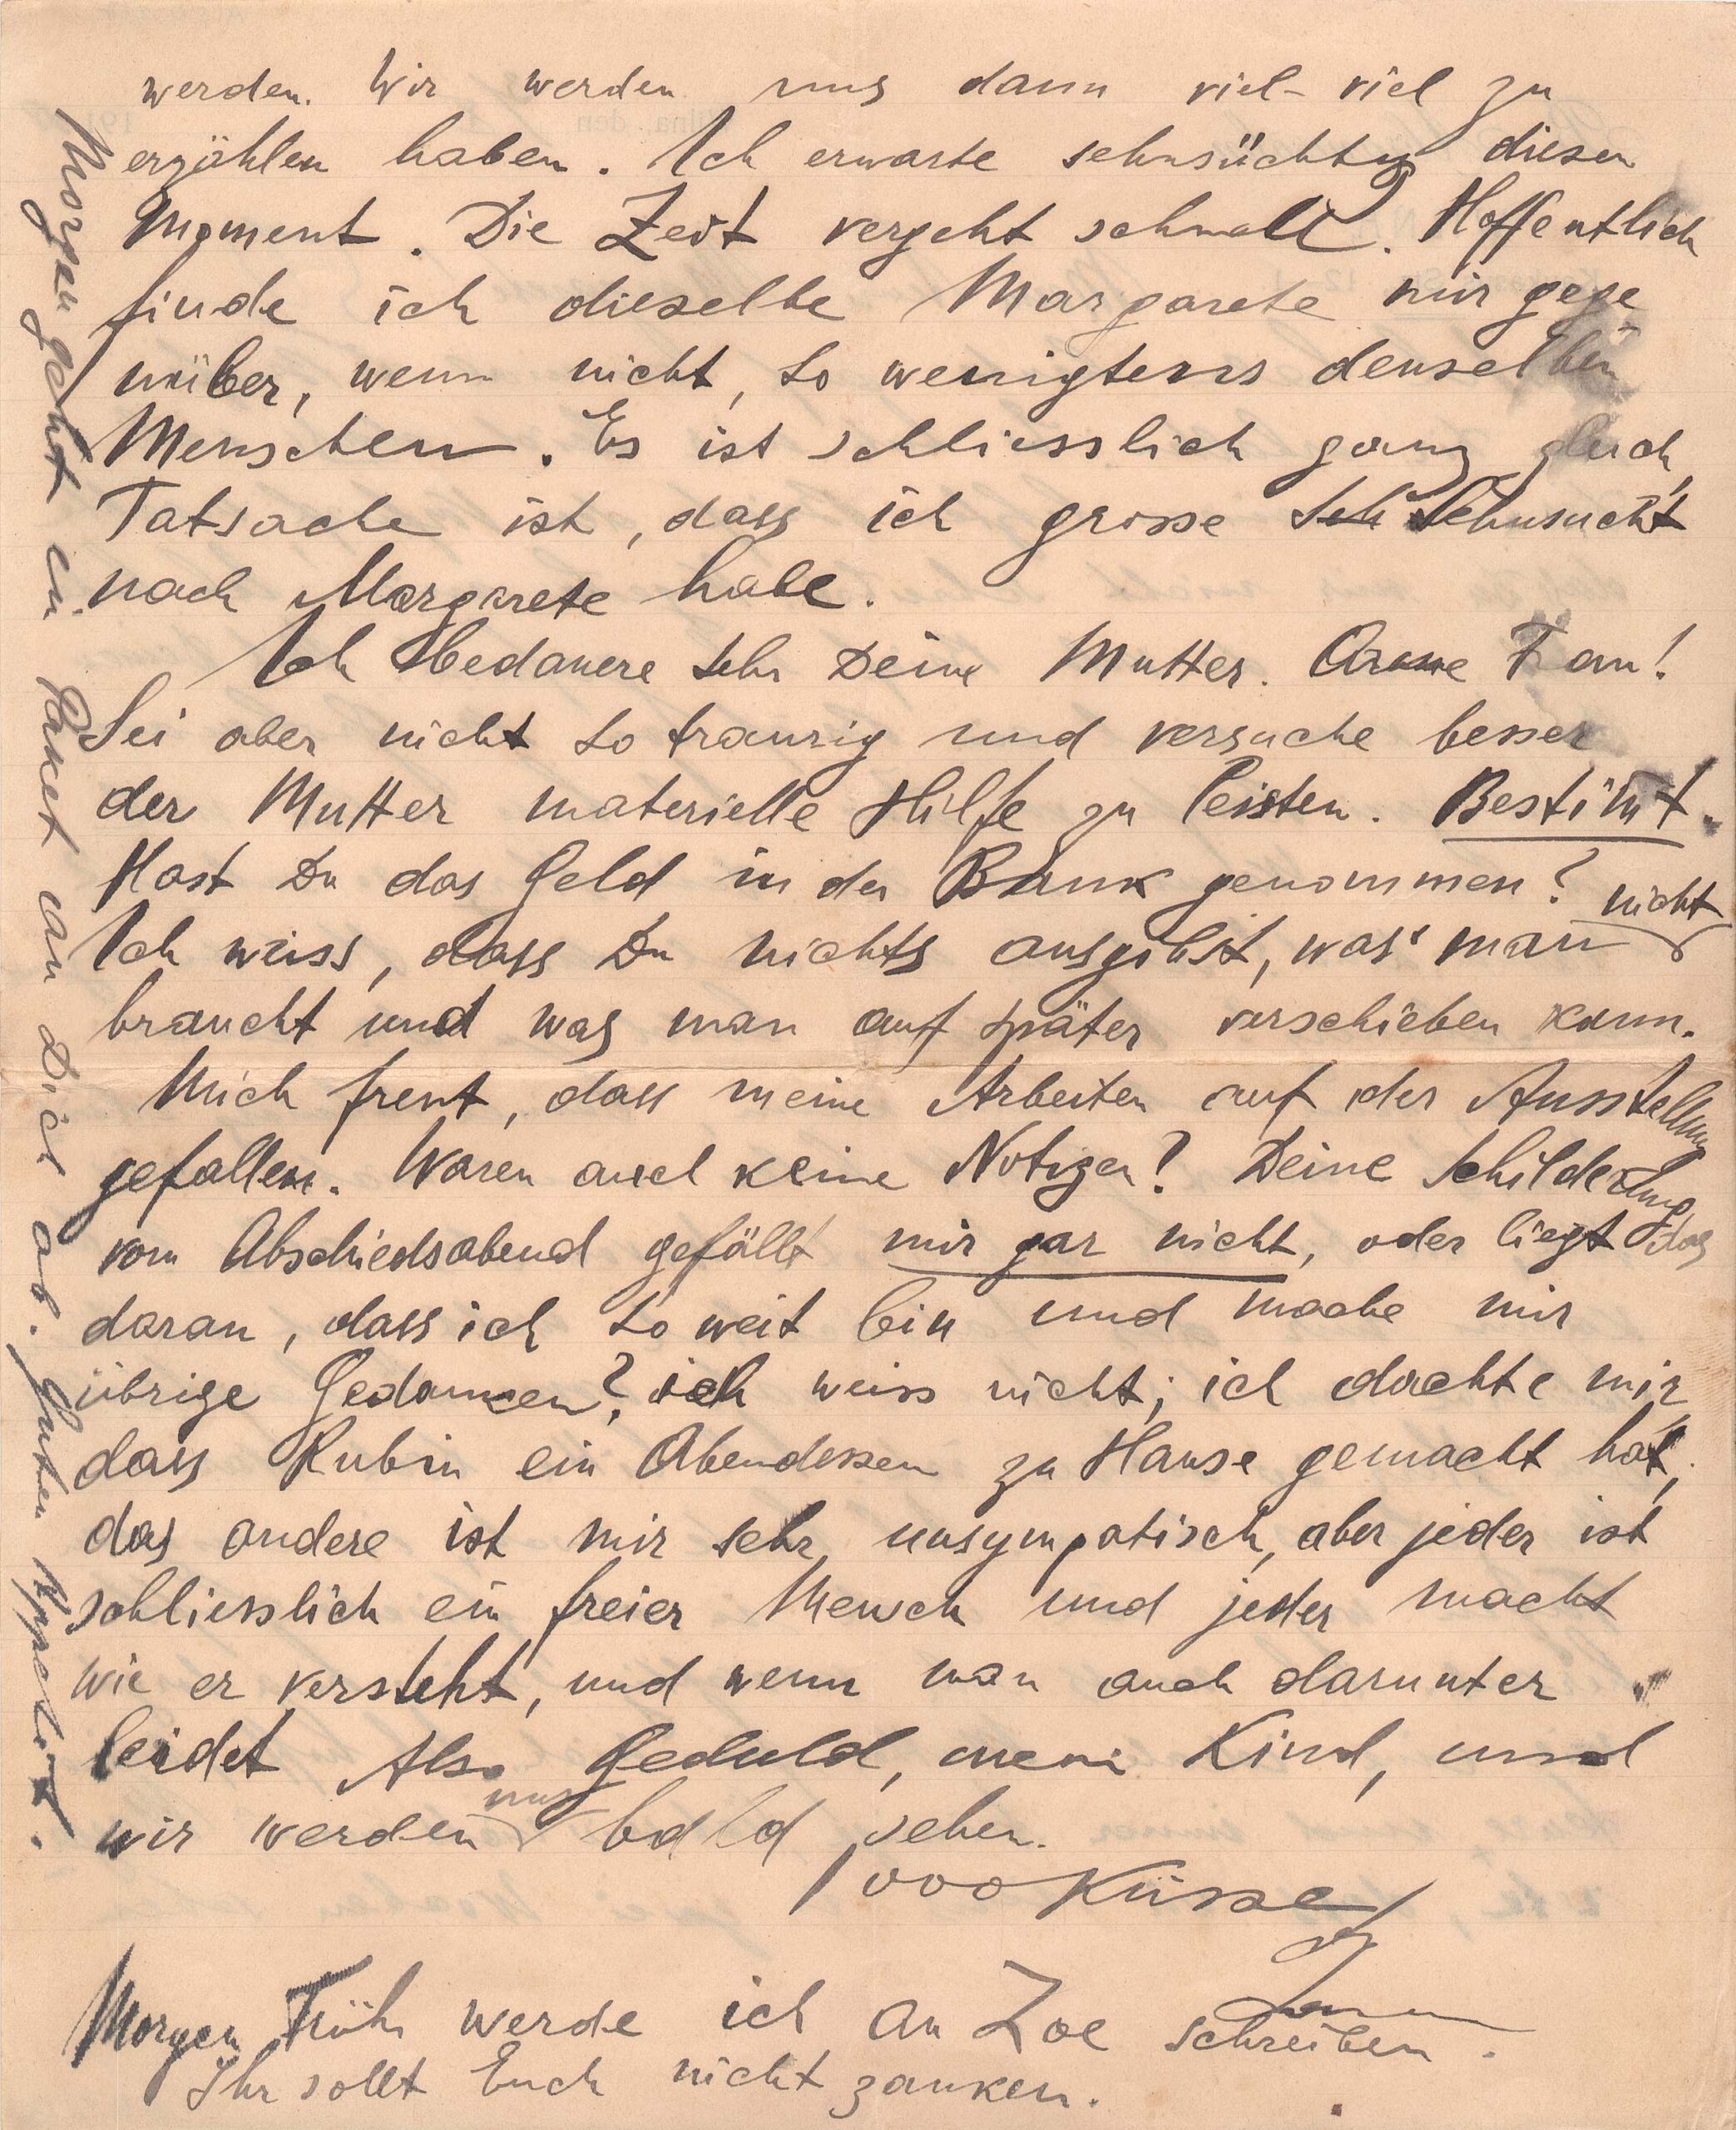 werden. Wir werden uns dann viel-viel zu
erzählen haben. Ich erwarte sehnsüchtig diesen
Moment. Die Zeit vergeht schnell. Hoffentlich
finde ich dieselbe Margarete mir gege
nüber, wenn nicht, so wenigtens denselben
Menschen. Es ist schliesslich ganz gleich,
Tatsache ist, dass ich grosse Seh Sehnsucht
nach Margarete habe.
Ich bedauere sehr Deine Mutter. Arme Frau!
Sei aber nicht so traurig und versuche besser
der Mutter materielle Hilfe zu leisten. Bestim̅t.
Hast Du das Geld in der Bank genommen?
Ich weiss, dass Du nichts ausgibst, was man nicht
braucht und was man auf später verschieben kann.
Mich freut, dass meine Arbeiten auf der Ausstellung
gefallen. Waren auch keine Notizen? Deine Schilderung
vom Abschiedsabend gefällt mir gar nicht, oder liegt das
daran, dass ich so weit bin und mache mir
übrige Gedanken? ich weiss nicht; ich dachte mir
dass Rubin ein Abendessen zu Hause gemacht hat,
das andere ist mir sehr unsympatisch, aber jeder ist
schliesslich ein freier Mensch und jeder macht
wie er versteht, und wenn man auch darunter
leidet Also Geduld, mein Kind, und
wir werden uns bald sehen.
1000 Küsse
Morgen Früh werde ich an Zoe schreiben.
Ihr sollt Euch nicht zanken.
Morgen geht ein Paket an Dich ab. Guten Appetit.